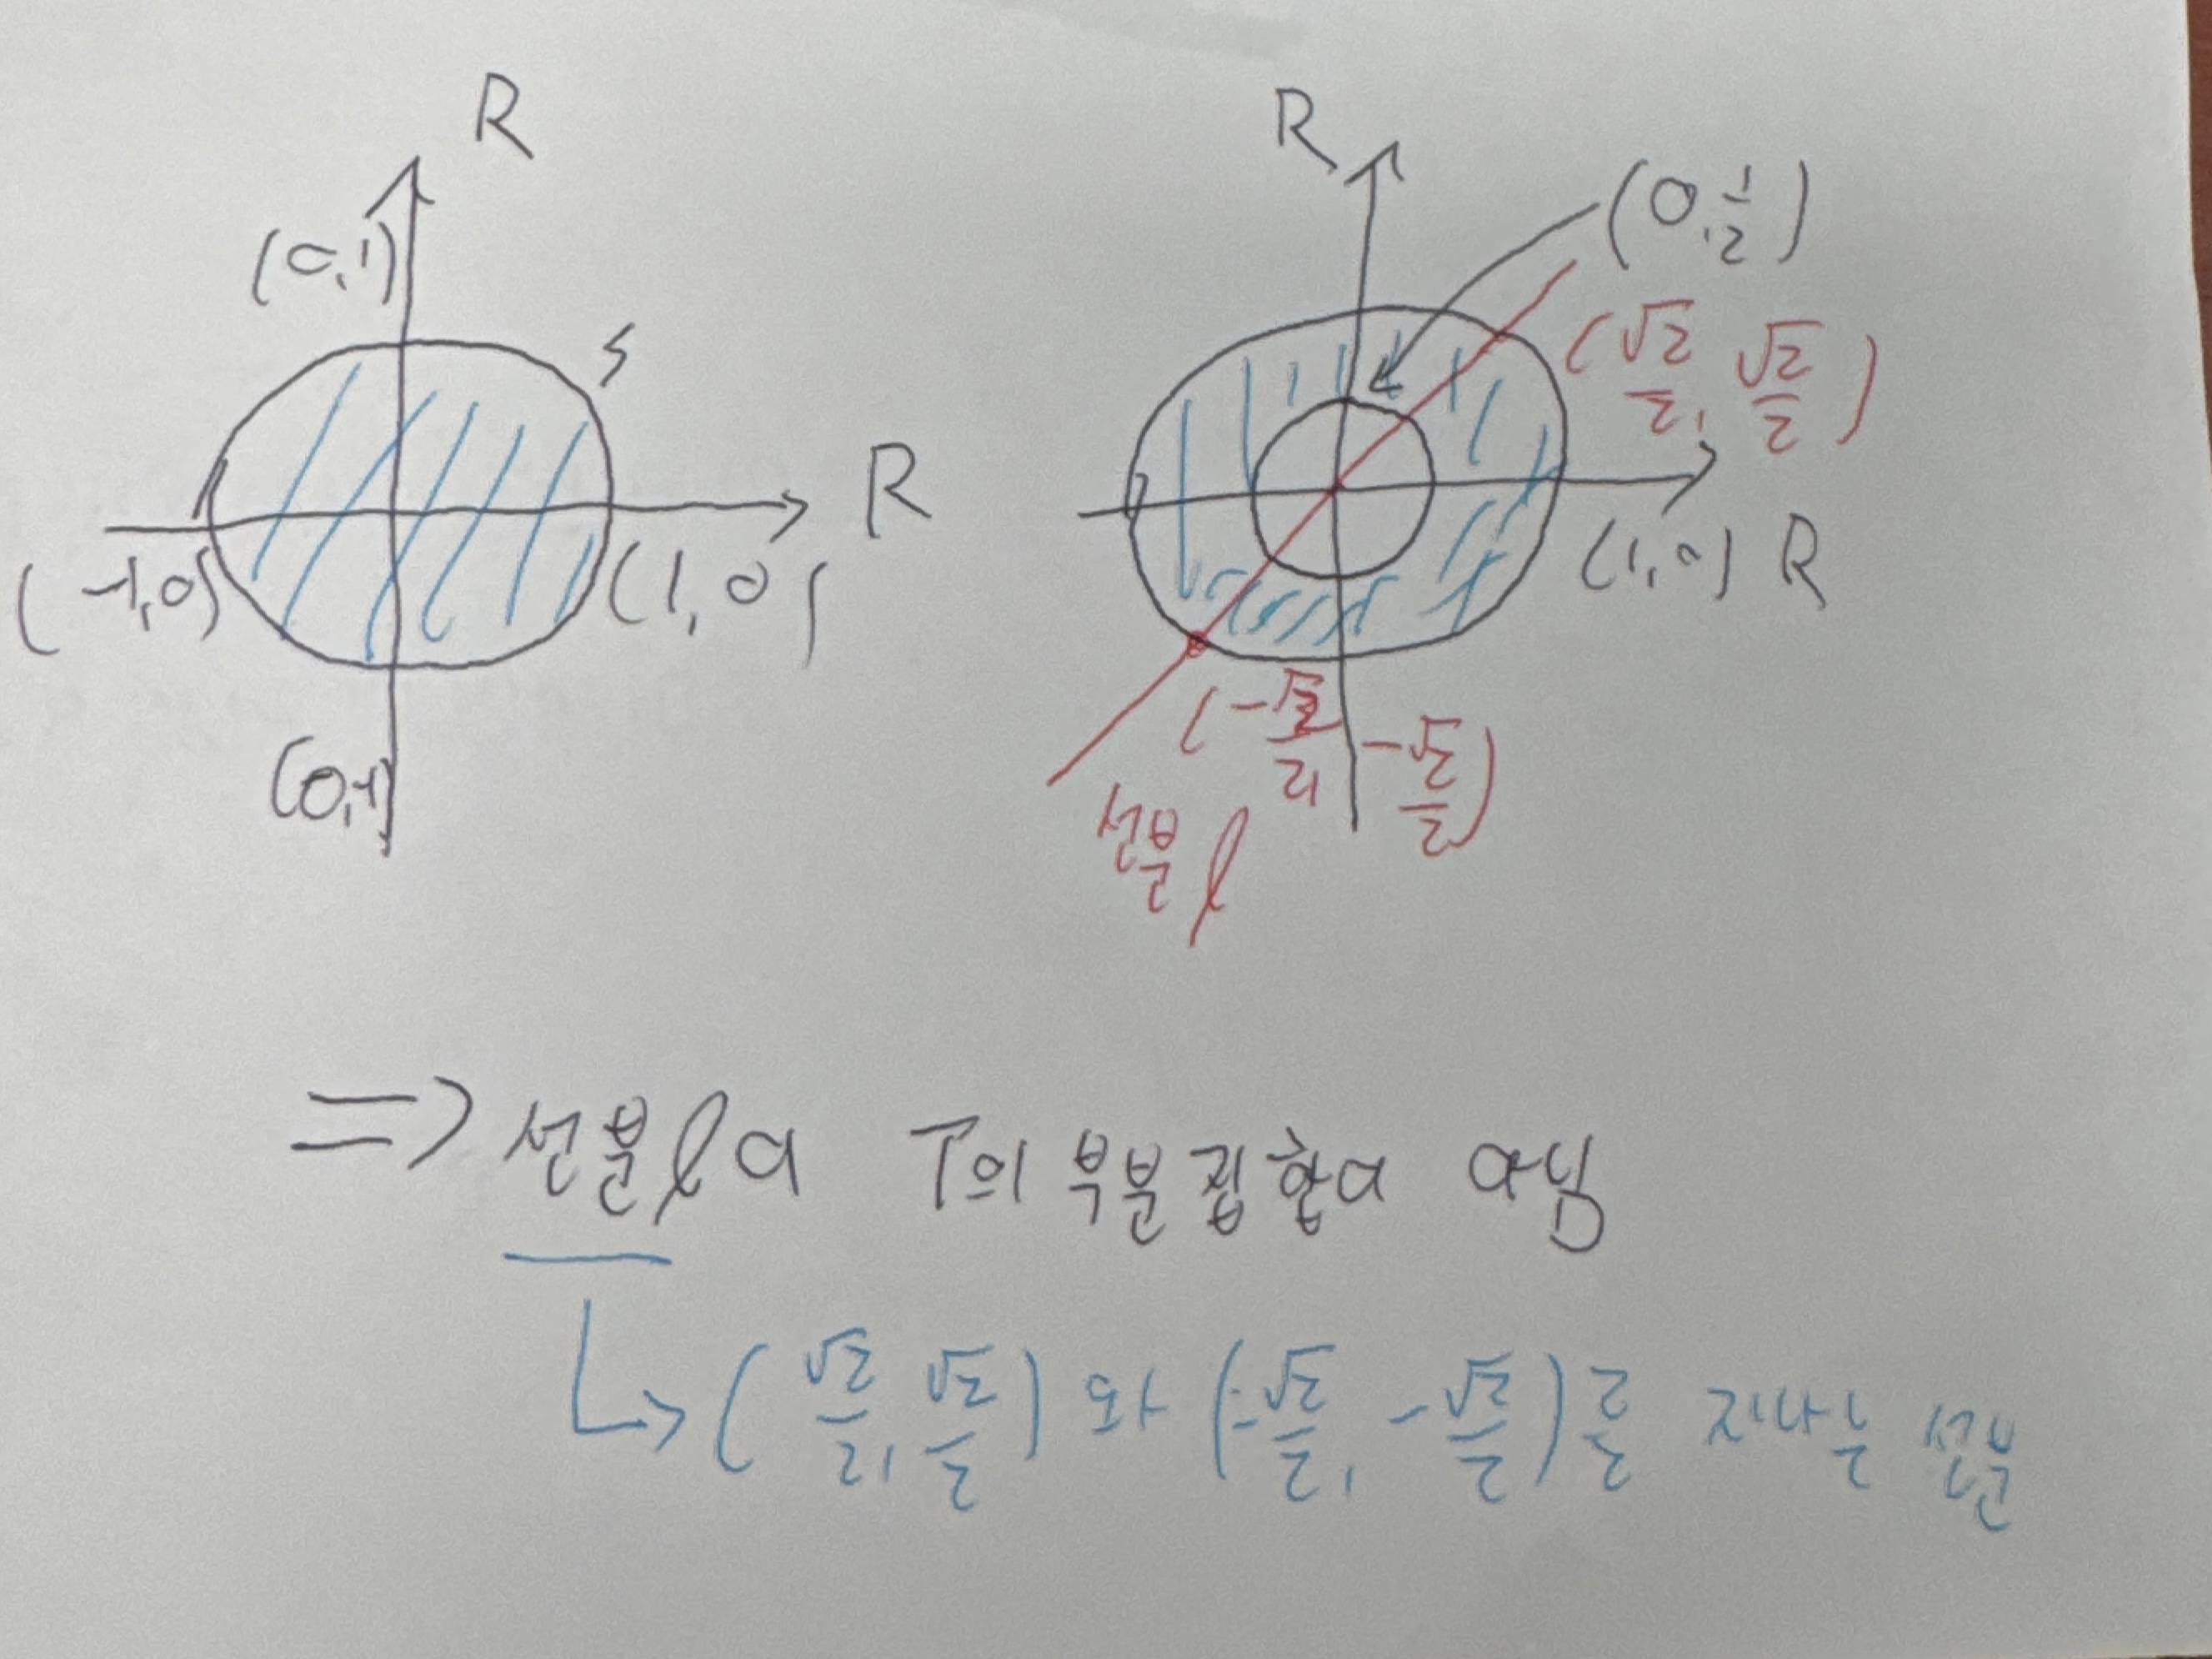 R
(0,1)
S
R
(-1,0)
(1,0)
(0,-1)
R
(0,1/2)
(√2/2, √2/2)
(1,0) R
(-√2/2, -√2/2)
선분 l
⇒ 선분 l이 T의 부분집합이 아님
↳ (√2/2, √2/2) 와 (-√2/2, -√2/2)를 지나는 선분